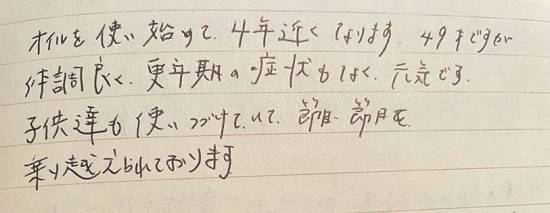 オイルを使い始めて、4年近くなります。49才ですが
体調良く、更年期の症状もなく、元気です。
子供達も使いつづけていて、節目、節目を
乗り越えられております